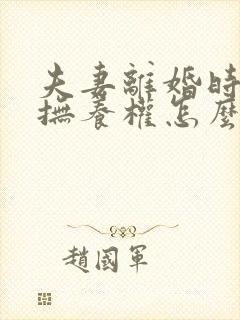 夫妻離婚時
撫養權怎麼
趙國軍